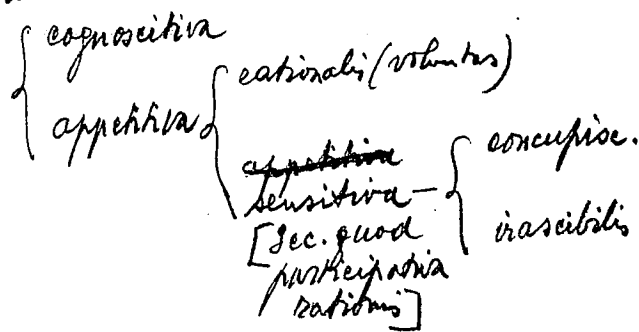 cognoscitiva
appetitiva
rationalis (voluntas)
appetitiva
sensitiva —
[Sec. quod
participativa
rationis]
concupisc.
irascibilis